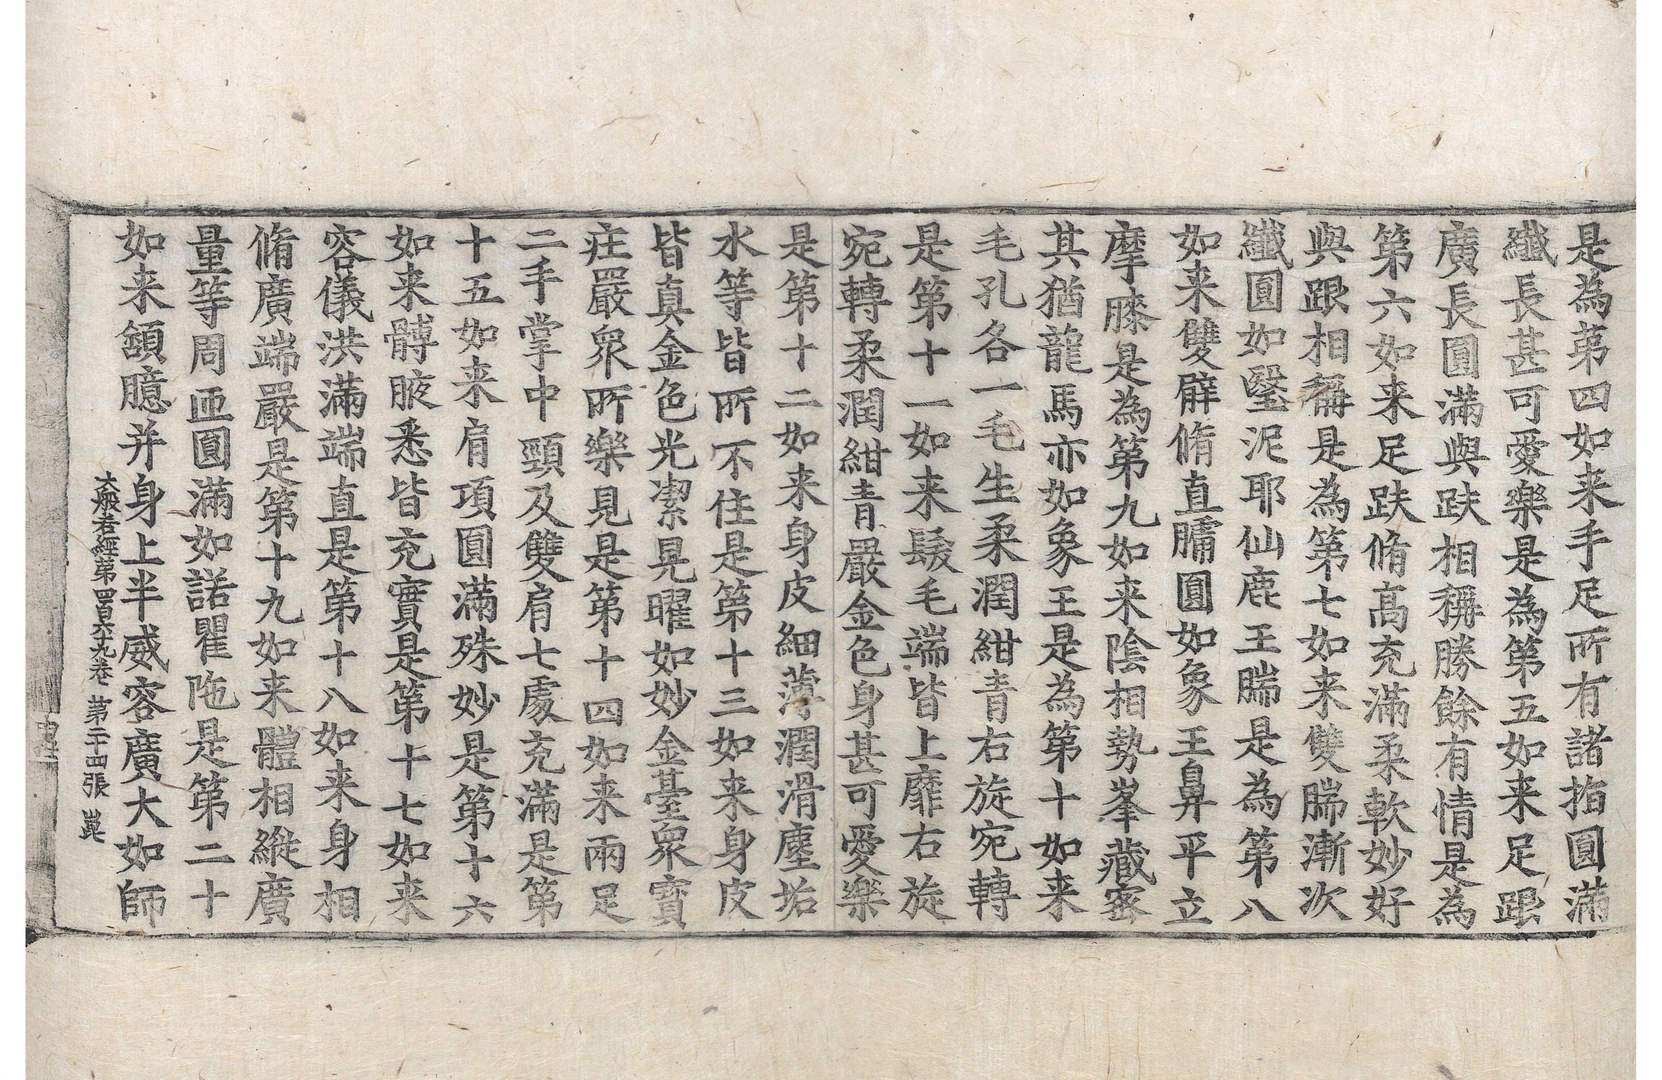 是為第四如来手足所有諸指圓滿
纖長甚可愛樂是為第五如来足跟
廣長圓滿與趺相稱勝餘有情是為
第六如来足趺脩高充滿柔軟妙好
與跟相稱是為第七如来雙腨漸次
纖圓如瑿泥耶仙鹿王腨是為第八
如来雙臂脩直𦟛圓如象王鼻平立
摩膝是為第九如来陰相勢峯藏密
其猶龍馬亦如象王是為第十如来
毛孔各一毛生柔潤紺青右旋宛轉
是第十一如来髮毛端皆上靡右旋
宛轉柔潤紺青嚴金色身甚可愛樂
是第十二如来身皮細薄潤滑塵垢
水等皆所不住是第十三如来身皮
皆真金色光潔晃曜如妙金臺衆寶
莊嚴衆所樂見是第十四如来兩足
二手掌中頸及雙肩七處充滿是第
十五如来肩項圓滿殊妙是第十六
如来髆腋悉皆充實是第十七如来
容儀洪滿端直是第十八如来身相
脩廣端嚴是第十九如来體相縱廣
量等周迊圓滿如諾瞿陁是第二十
如来頷臆并身上半威容廣大如師
大般若經第四百六十九卷 第二十四張 崑